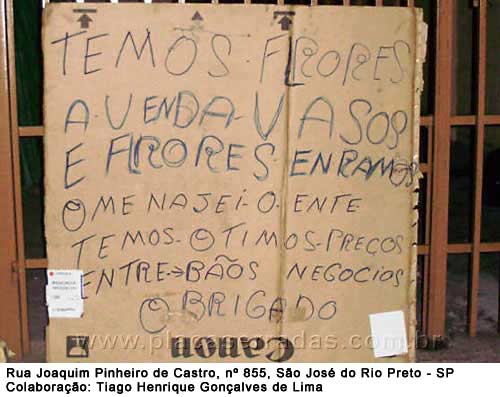 TEMOS. FLRORES
A. VENDA. VASOS
E FLRORES. EN RAMOS
OMENAJEI. O. ENTE
TEMOS. OTIMOS. PREÇOS
ENTRE→BÃOS NEGOCIOS.
OBRIGADO
www.placaserradas.com.br
Canon
Rua Joaquim Pinheiro de Castro, nº 855, São José do Rio Preto - SP
Colaboração: Tiago Henrique Gonçalves de Lima